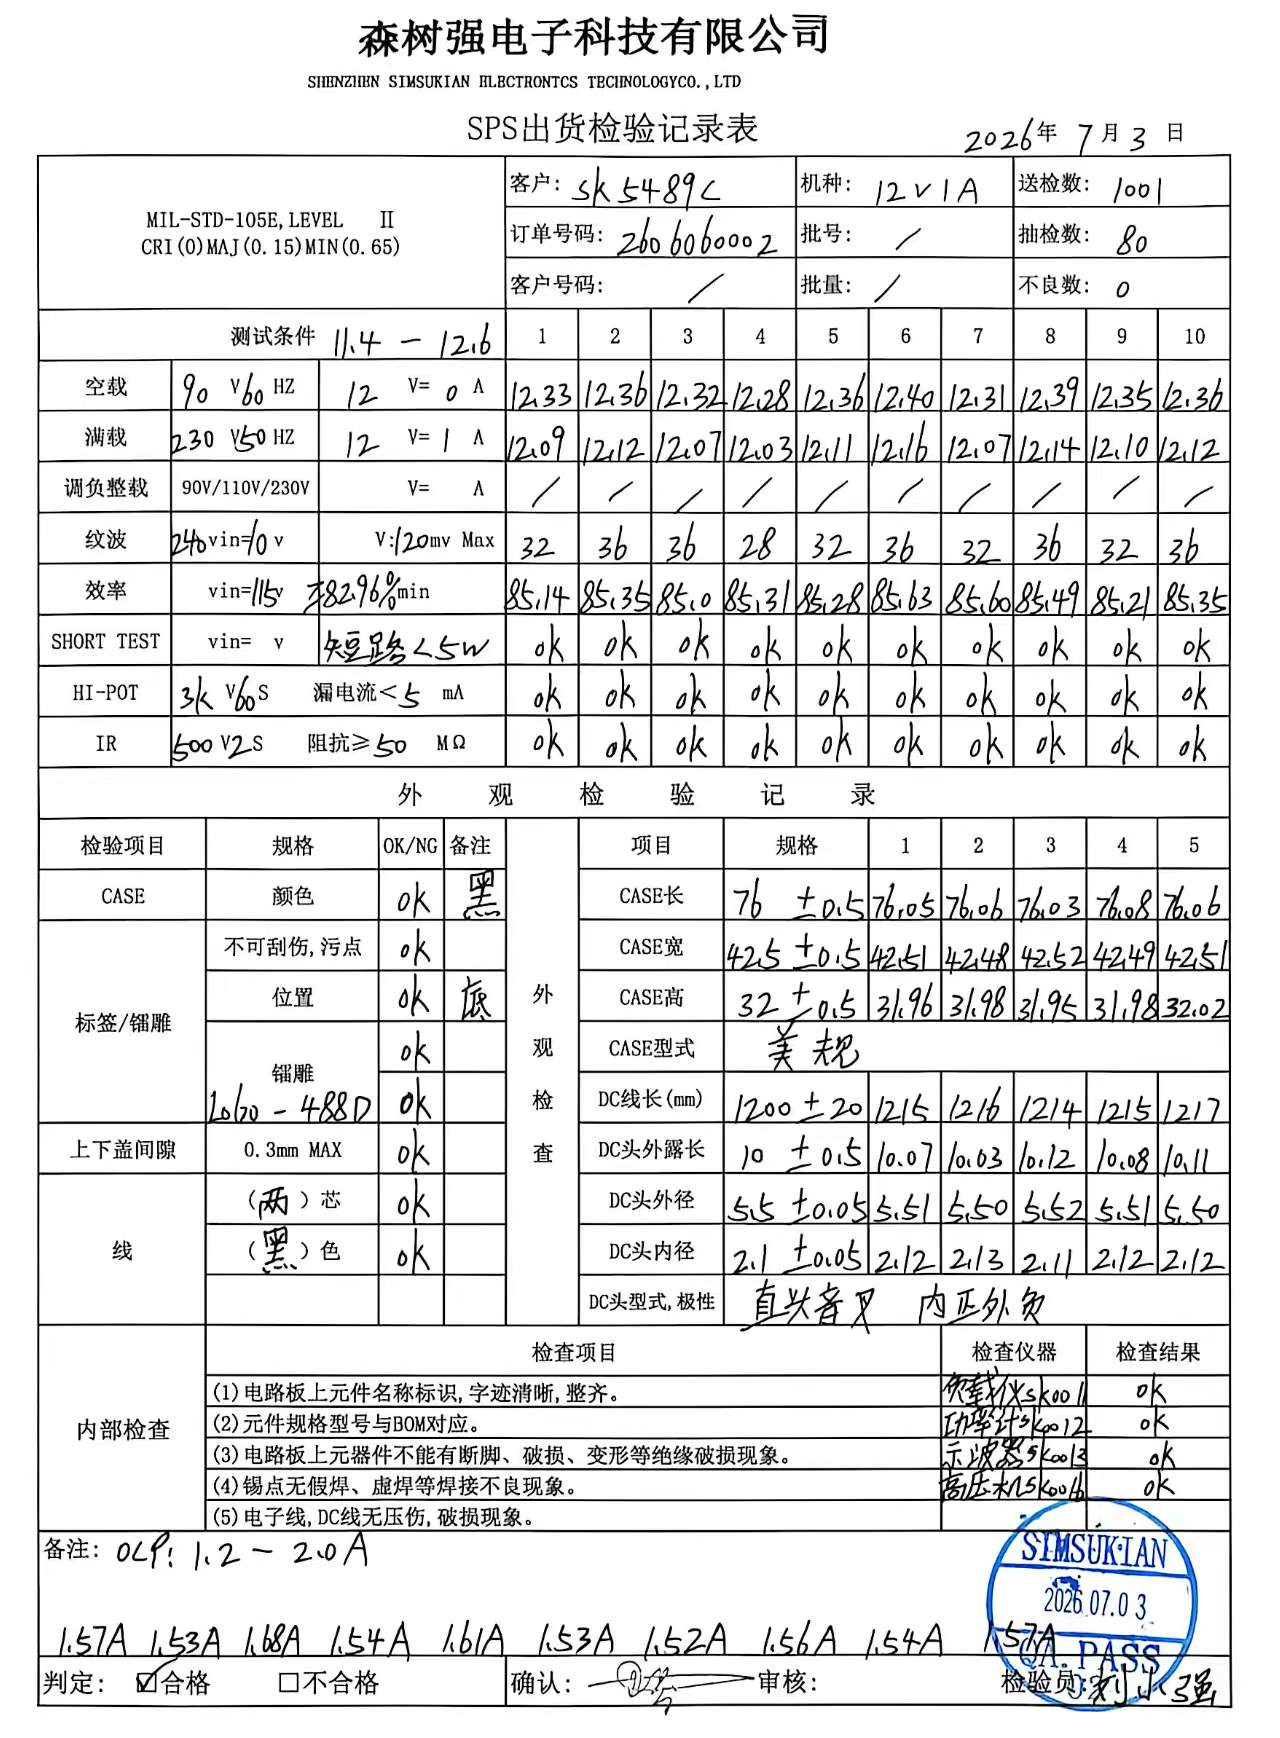 森树强电子科技有限公司
SHENZHEN SIMSUKIAN ELECTRONTCS TECHNOLOGYCO.,LTD
SPS出货检验记录表 2026年 7月 3 日
MIL-STD-105E,LEVEL Ⅱ
CRI(0)MAJ(0.15)MIN(0.65)
客户: SK5489C 机种: 12V1A 送检数: 1001
订单号码: 2606060002 批号: / 抽检数: 80
客户号码: / 批量: / 不良数: 0
测试条件 11.4 - 12.6 1 2 3 4 5 6 7 8 9 10
空载 90 V60 HZ 12 V= 0 A 12.33 12.36 12.32 12.28 12.36 12.40 12.31 12.39 12.35 12.36
满载 230 V50 HZ 12 V= 1 A 12.09 12.12 12.07 12.03 12.11 12.16 12.07 12.14 12.10 12.12
调负整载 90V/110V/230V V= A / / / / / / / / / /
纹波 240vin=10 v V:120mv Max 32 36 36 28 32 36 32 36 32 36
效率 vin=115v 82.96%min 85.14 85.35 85.0 85.31 85.28 85.63 85.60 85.49 85.21 85.35
SHORT TEST vin= v 短路<5W ok ok ok ok ok ok ok ok ok ok
HI-POT 3k V60S 漏电流<5 mA ok ok ok ok ok ok ok ok ok ok
IR 500 V2S 阻抗≥50 MΩ ok ok ok ok ok ok ok ok ok ok
外观检验记录
检验项目 规格 OK/NG 备注 项目 规格 1 2 3 4 5
CASE 颜色 ok 黑 CASE长 76 ±0.5 76.05 76.06 76.03 76.08 76.06
不可刮伤,污点 ok CASE宽 42.5 ±0.5 42.51 42.48 42.52 42.49 42.51
标签/镭雕 位置 ok 底 外观检查 CASE高 32 ±0.5 31.96 31.98 31.95 31.98 32.02
镭雕 ok CASE型式 美规
-488D ok DC线长(mm) 1200 ±20 1215 1216 1214 1215 1217
上下盖间隙 0.3mm MAX ok DC头外露长 10 ±0.5 10.07 10.03 10.12 10.08 10.11
线 (两)芯 ok DC头外径 5.5 ±0.05 5.51 5.50 5.52 5.51 5.50
(黑)色 ok DC头内径 2.1 ±0.05 2.12 2.13 2.11 2.12 2.12
DC头型式,极性 直头音叉 内正外负
内部检查 检查项目 检查仪器 检查结果
(1)电路板上元件名称标识,字迹清晰,整齐。 负载仪SK0011 ok
(2)元件规格型号与BOM对应。 功率计SK0012 ok
(3)电路板上元器件不能有断脚、破损、变形等绝缘破损现象。 示波器SK0013 ok
(4)锡点无假焊、虚焊等焊接不良现象。 高压机SK0016 ok
(5)电子线,DC线无压伤,破损现象。
备注: OCP: 1.2 - 2.0A
SIMSUKIAN
2026.07.03
1.57A 1.53A 1.68A 1.54A 1.61A 1.53A 1.52A 1.56A 1.54A 1.57A
QA.PASS
判定: ☑合格 □不合格 确认: 审核: 检验员: 刘小强